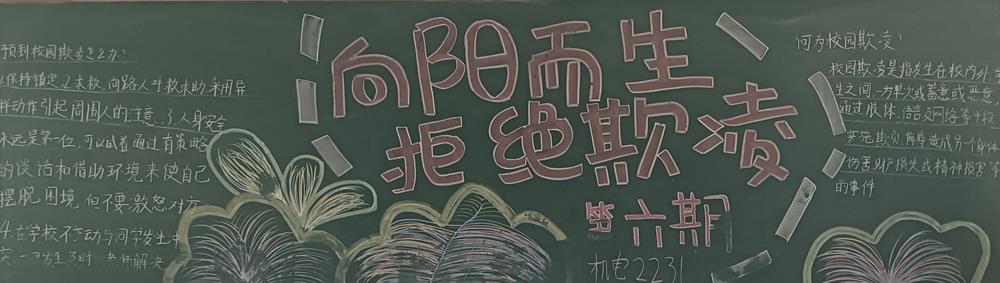 预到校园欺凌怎么办?
1.保持镇定.2.求救,向路人呼救求助,利用异
样动作引起周围人的注意.3.人身安全
永远是第一位,可以试着通过有策略
的谈话和借助环境来使自己
摆脱困境,但不要激怒对方
4.在学校不主动与同学发生冲
突,一旦发生及时 老师解决
向阳而生
拒绝欺凌
第六期
机电2231
何为校园欺凌?
校园欺凌是指发生在校内外、
生之间,一方单次或蓄意或恶意
通过肢体、语言及网络等手段
实施欺负、侮辱造成另一
伤害、财产损失或精神损害等
的事件